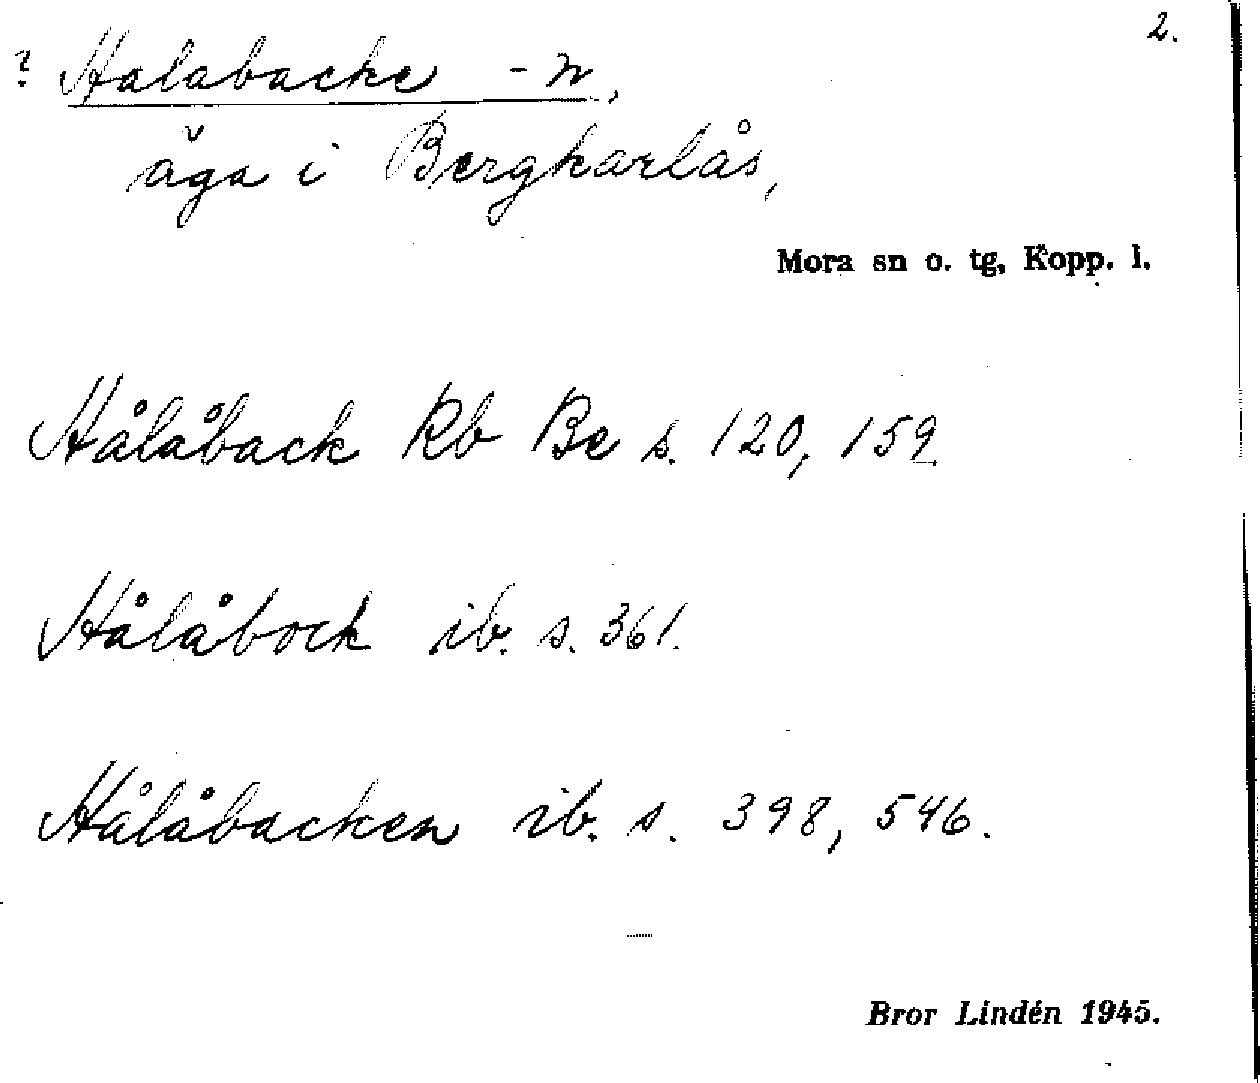 2.
? Halabacke -n,
äga i Bergkarlås,
Mora sn o. tg, Kopp. l.
Hålåback Rb Be s. 120, 159
Hålåbock ib. s. 361.
Hålåbacken ib. s. 398, 546.
Bror Lindén 1945.